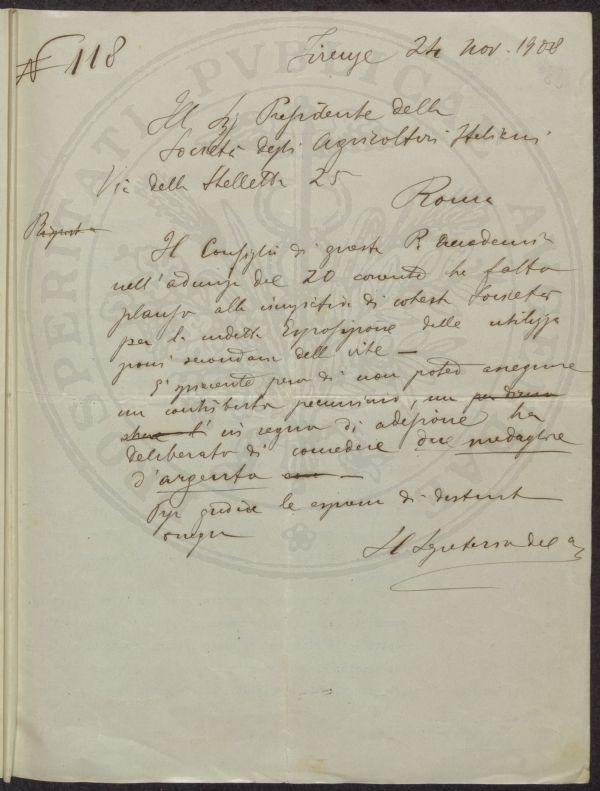 N 118
Firenze 24 Nov. 1908
Il Sig Presidente della
Società degli Agricoltori Italiani
Via della Stelletta 25
Roma
Risposta
Il Consiglio di questa R. Accademia
nell'adunza del 20 corrente ha fatto
plauso alla iniziativa di cotesta Società
per la indetta Esposizione delle utilizza
zioni secondarie dell vite —
E' spiacente però di non poter assegnare
un contributo pecuniario, ma
in segno di adesione ha
deliberato di concedere due medaglie
d'argento
le espressi di distinta
Il Segretario del
PROSPERITATI PVBLICAE AVGENDAE